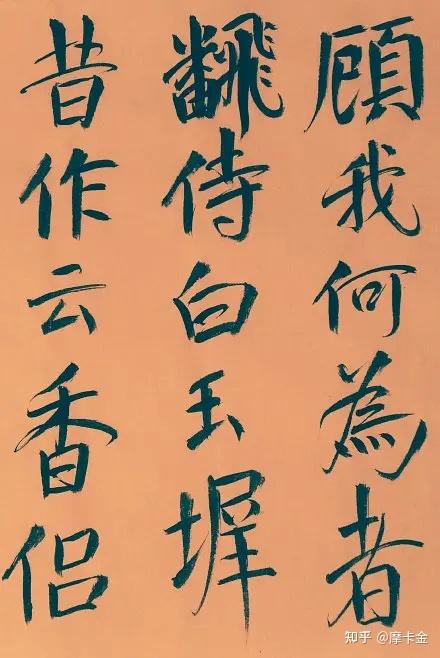 顧我何為者
飜侍白玉墀
昔作云香侣
知乎 @摩卡金